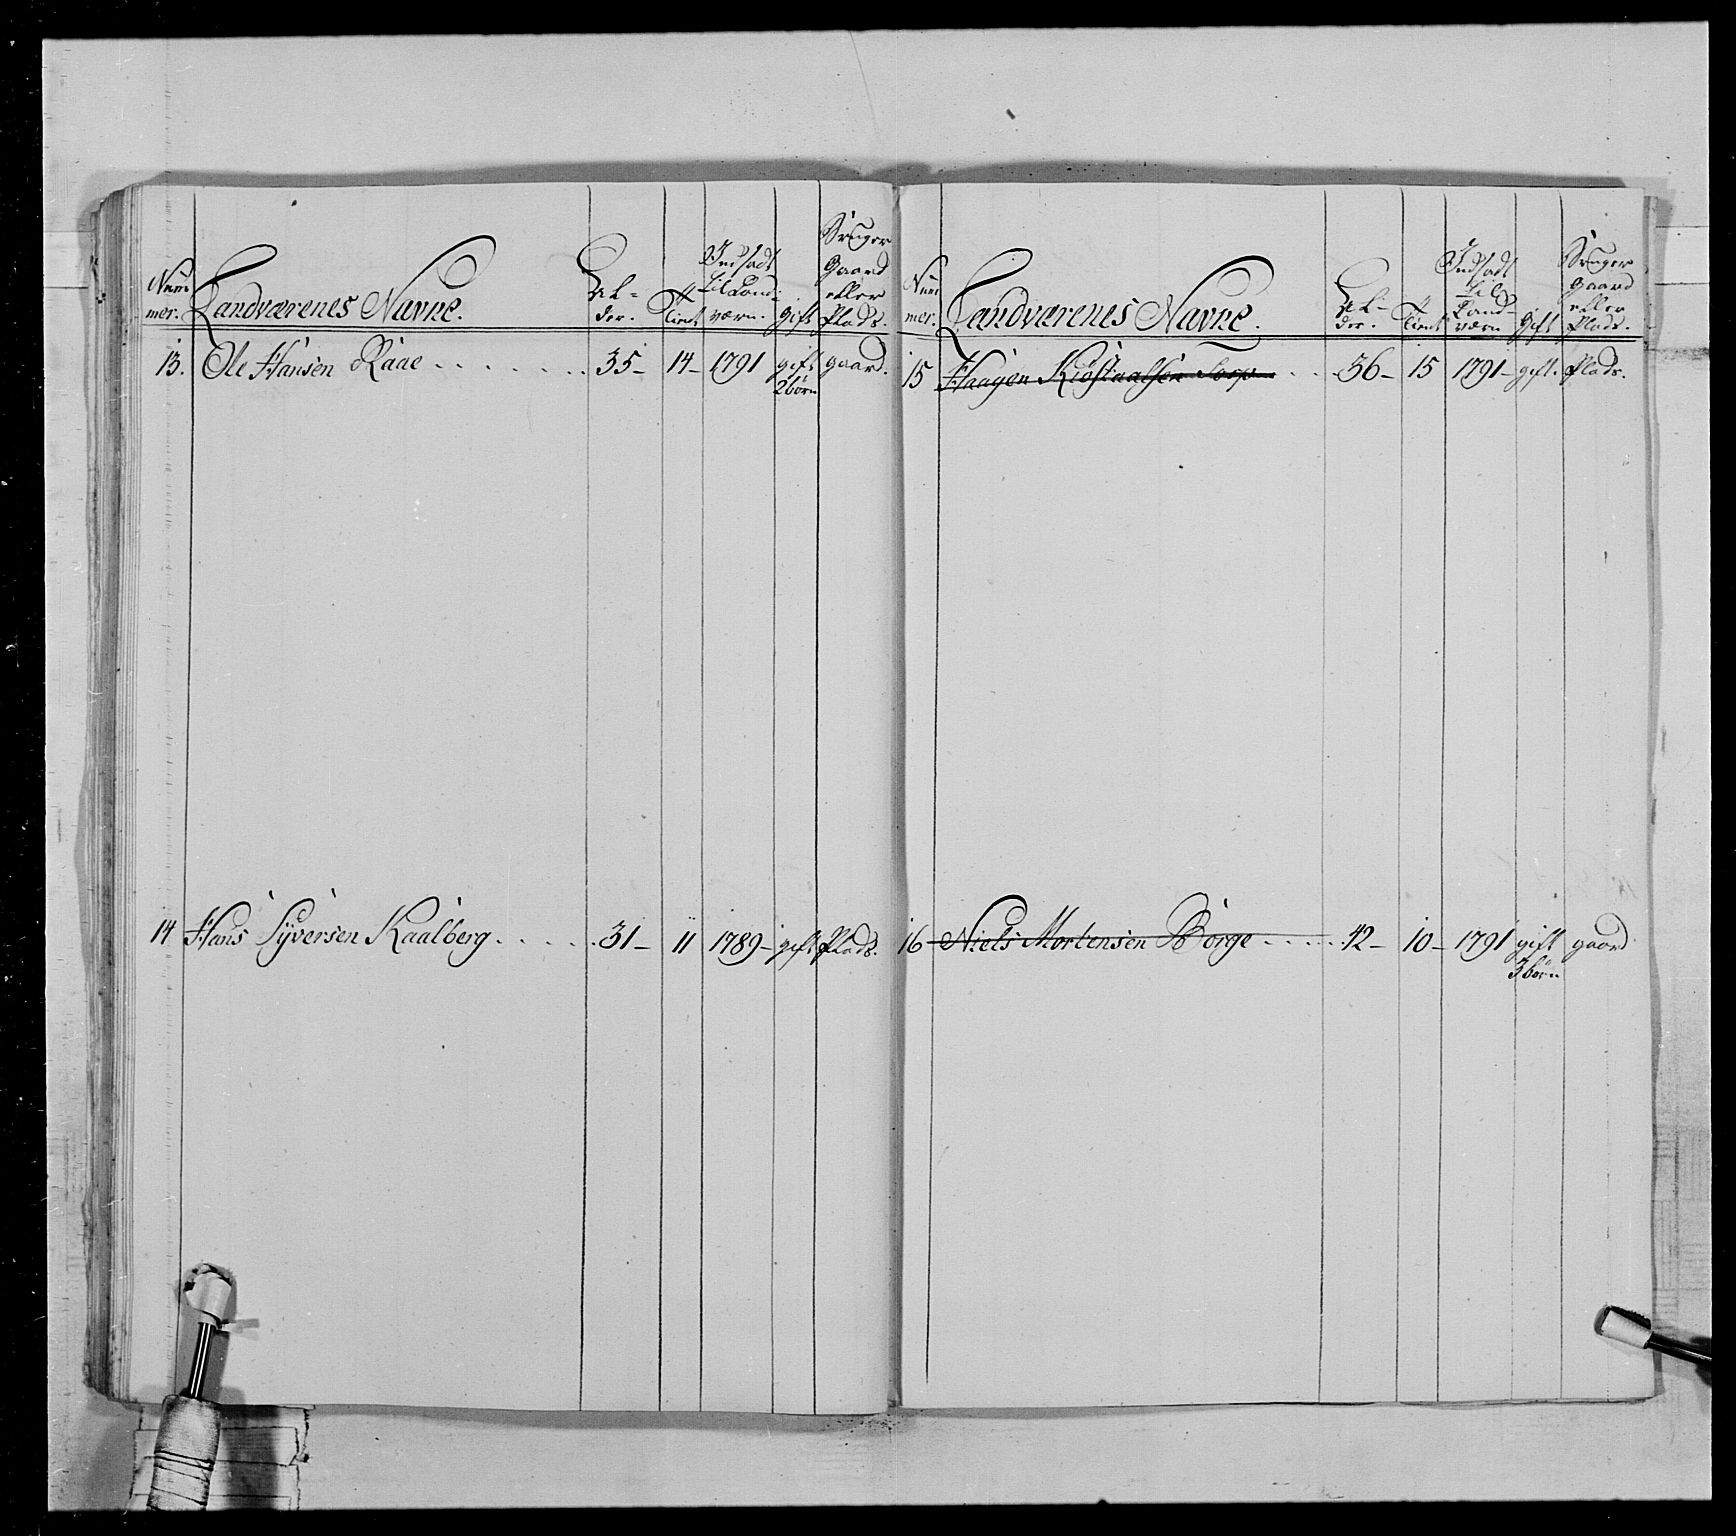 Num
mer.
Landværenes Navne.
Al-
der.
Tient
Indsadt
til Land-
værn.
gift
Bruger
Gaard
eller
Plads.
13. Ole Hansen Raae 35 - 14 - 1791 gift gaard.
2 börn
14 Hans Syversen Kaalberg 31 - 11 1789 - gift Plads.
Num
mer.
Landværenes Navne.
Al-
der.
Tient
Indsadt
til
Land-
værn
Gift
Bruger
Gaard
eller
Plads.
15 Haagen Kiöstaalsen 36 - 15 1791 - gift. Plads.
16 Niels Mortensen Börge 42 - 10 - 1791 gift gaard
3 börn